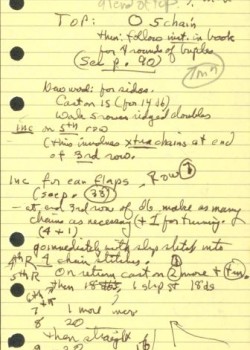 TOP: O 5 chain
then follow inst. in book
for 4 rounds of triples
(See p. 90)
New wool: for sides.
Cast on 15 (for 14 ds)
Work 5 rows ridged doubles
Inc on 5th row
(this involves xtra chains at end
of 3rd row.
Inc for ear flaps. Row
(see p. 33)
at end 3rd row of ds make as many
chains as necessary (+ 1 for turning.
(4 + 1)
go immediately with slip stitch into
4th R 4 chain stitches.
5th R On return cast on 2 more + turn.
then 18 1 slip st 18 ds
6th
7 1 more
8 20
then straight
9 20